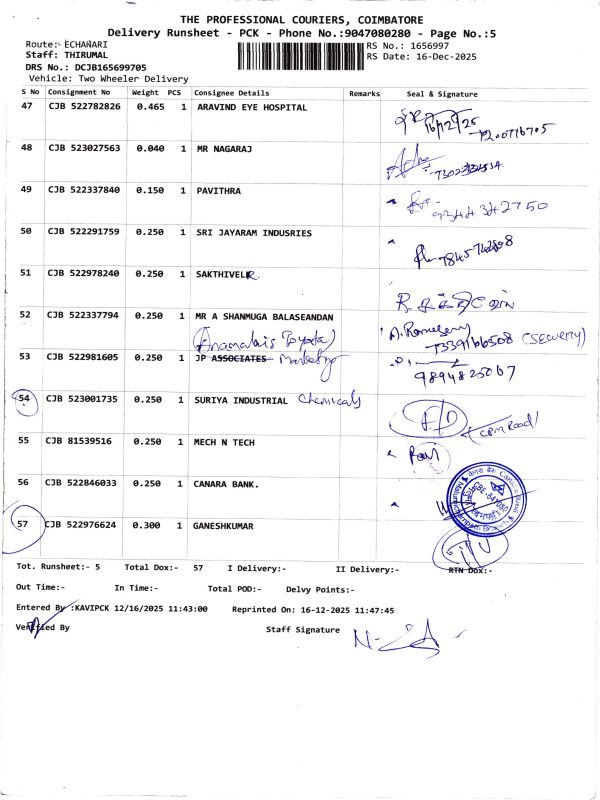 THE PROFESSIONAL COURIERS, COIMBATORE
Delivery Runsheet - PCK - Phone No.:9047080280 - Page No.:5
Route: ECHANARI
RS No.: 1656997
Staff: THIRUMAL
RS Date: 16-Dec-2025
DRS No.: DCJB165699705
Vehicle: Two Wheeler Delivery
S No Consignment No Weight PCS Consignee Details Remarks Seal & Signature
47 CJB 522782826 0.465 1 ARAVIND EYE HOSPITAL
16/12/25
48 CJB 523027563 0.040 1 MR NAGARAJ
49 CJB 522337840 0.150 1 PAVITHRA
9344342750
50 CJB 522291759 0.250 1 SRI JAYARAM INDUSRIES
51 CJB 522978240 0.250 1 SAKTHIVEL R.
52 CJB 522337794 0.250 1 MR A SHANMUGA BALASEANDAN
(Anamalais Toyota)
(SECURITY)
53 CJB 522981605 0.250 1 JP ASSOCIATES Marketing
9894825067
54 CJB 523001735 0.250 1 SURIYA INDUSTRIAL Chemicals
55 CJB 81539516 0.250 1 MECH N TECH
56 CJB 522846033 0.250 1 CANARA BANK.
57 CJB 522976624 0.300 1 GANESHKUMAR
Tot. Runsheet:- 5 Total Dox:- 57 I Delivery:- II Delivery:- RTN Dox:-
Out Time:- In Time:- Total POD:- Delvy Points:-
Entered By :KAVIPCK 12/16/2025 11:43:00 Reprinted On: 16-12-2025 11:47:45
Verified By Staff Signature